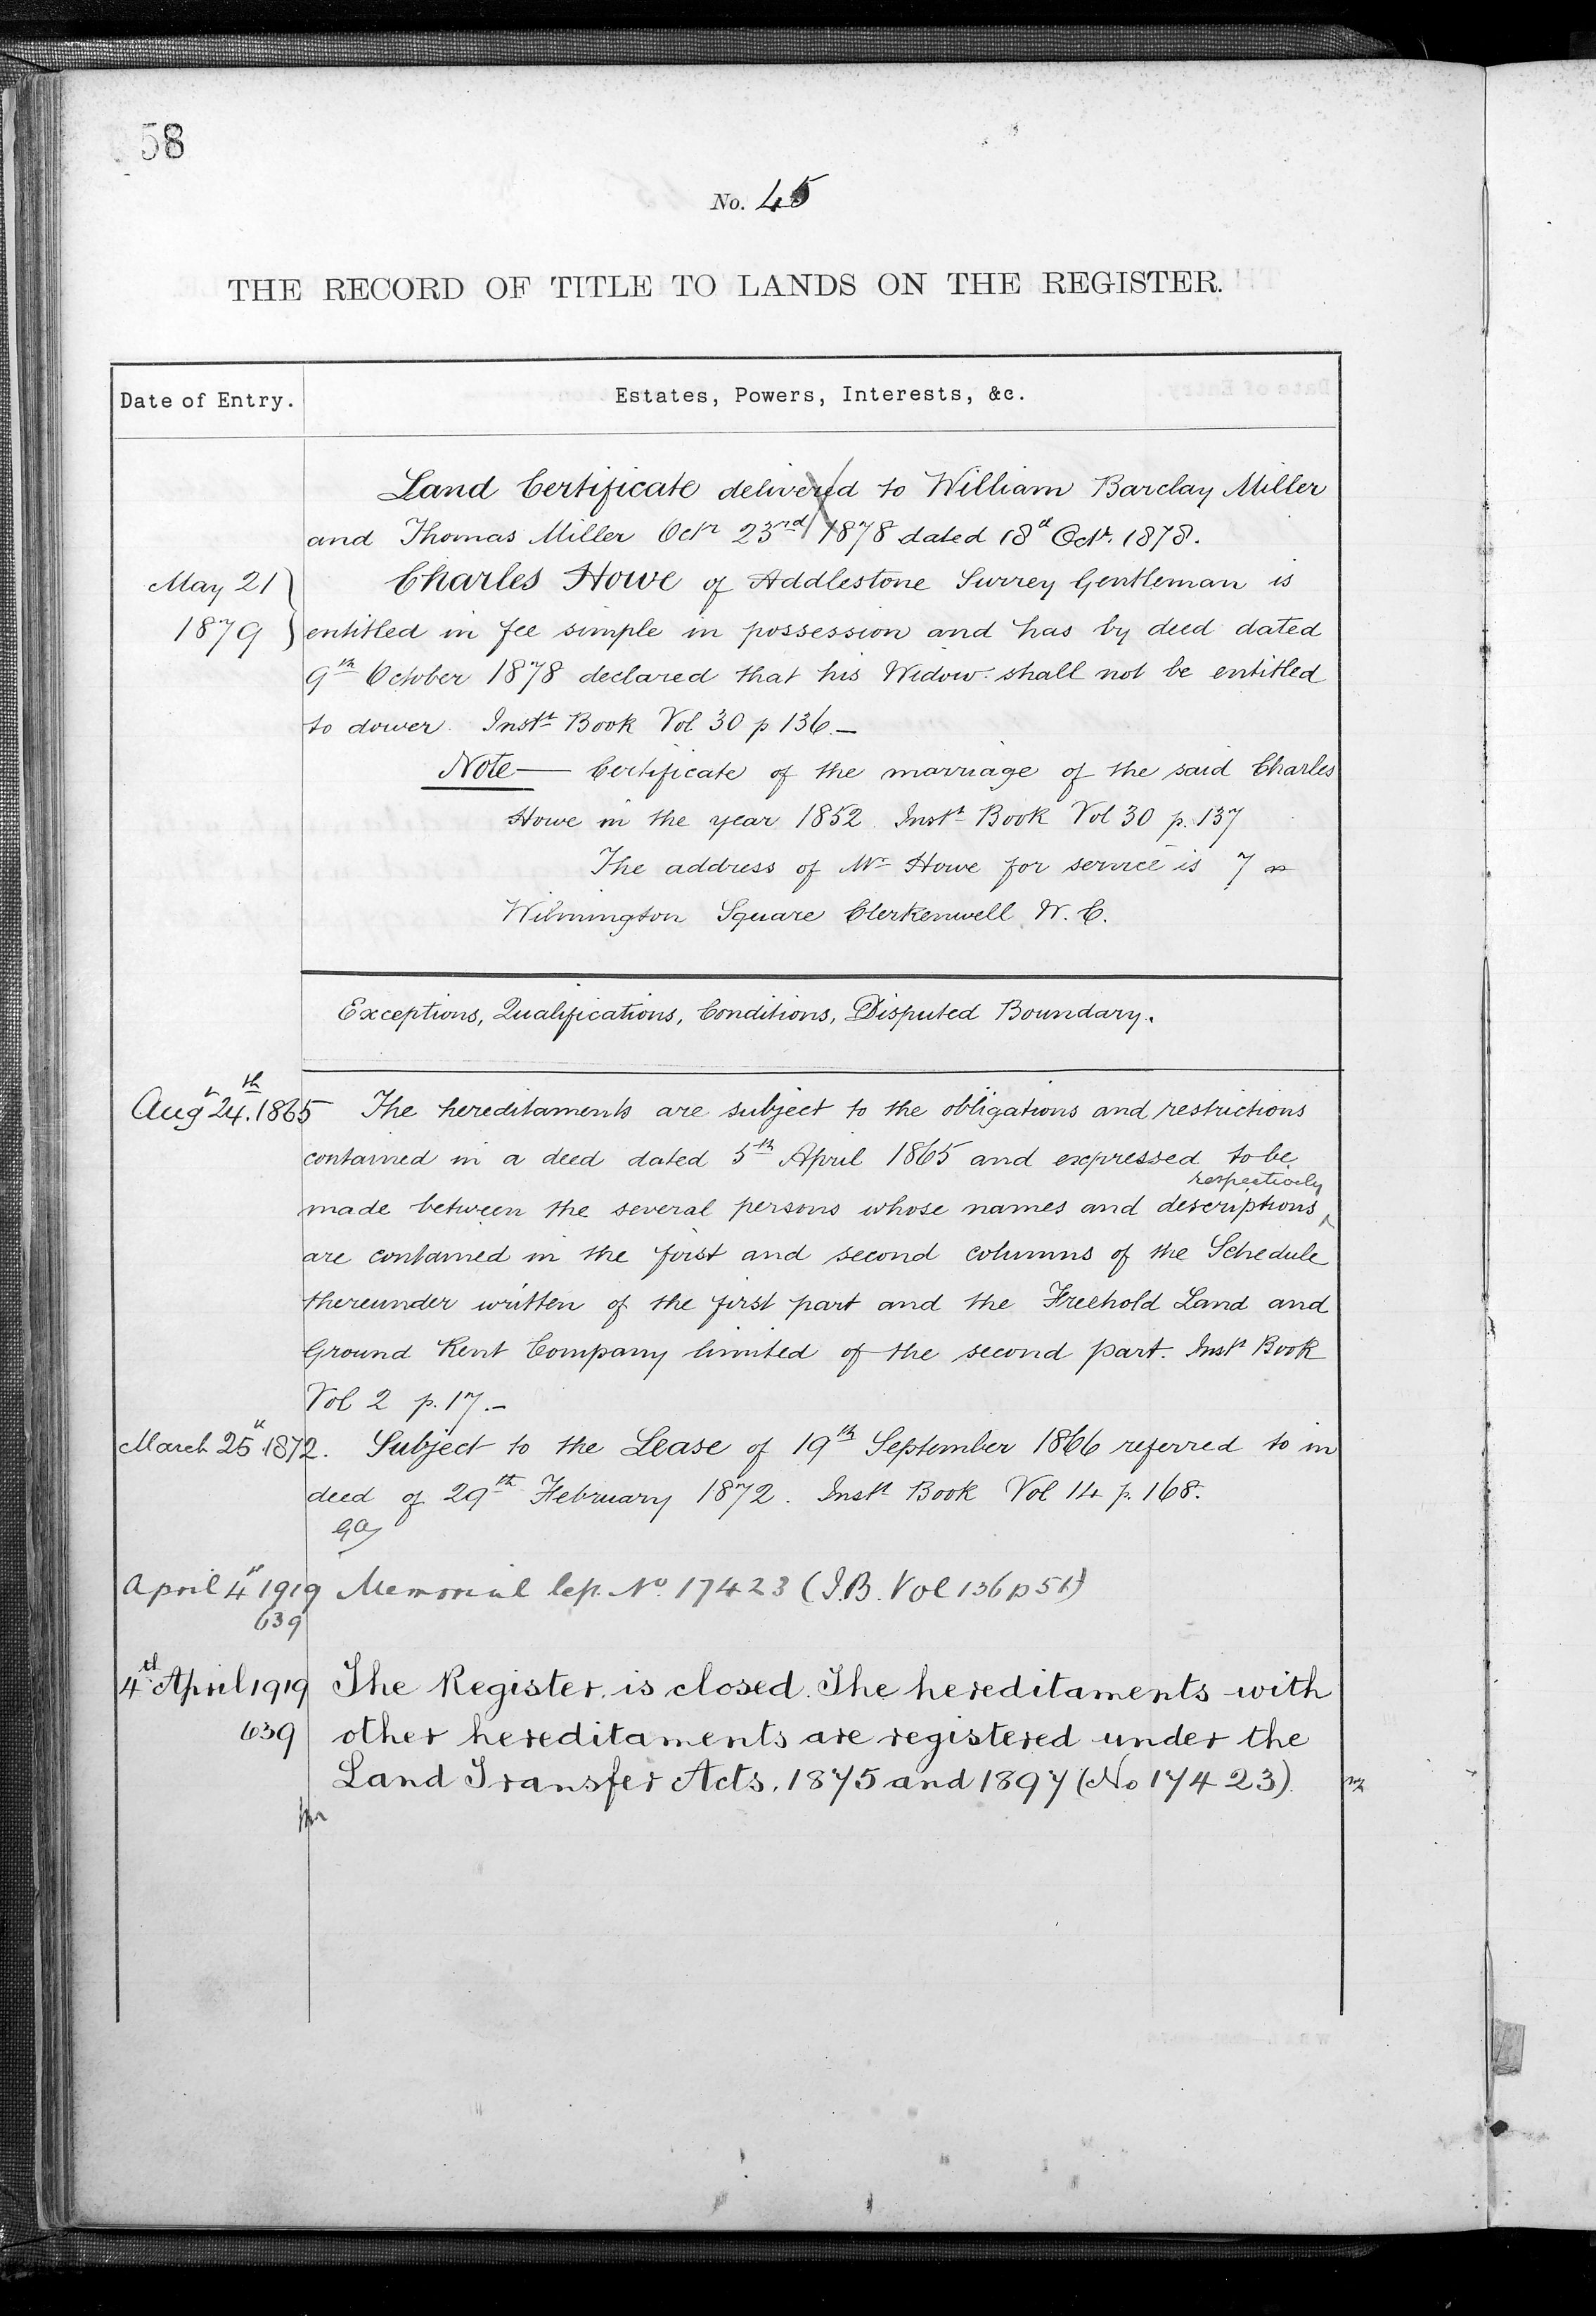 58
No. 45
THE RECORD OF TITLE TO LANDS ON THE REGISTER.
Date of Entry.
Estates, Powers, Interests, &c.
Land Certificate delivered to William Barclay Miller
and Thomas Miller Octr 23rd 1878 dated 18th Octr. 1878.
May 21 1879
Charles Howe of Addlestone Surrey Gentleman is
entitled in fee simple in possession and has by deed dated
9th October 1878 declared that his Widow shall not be entitled
to dower. Instt Book Vol 30 p 136.—
Note — Certificate of the marriage of the said Charles
Howe in the year 1852. Instt Book Vol 30 p. 137
The address of Mr Howe for service is 7
Wilmington Square Clerkenwell W. C.
Exceptions, Qualifications, Conditions, Disputed Boundary.
Augt 24th. 1865 The hereditaments are subject to the obligations and restrictions
contained in a deed dated 5th April 1865 and expressed to be
made between the several persons whose names and descriptions respectively
are contained in the first and second columns of the Schedule
thereunder written of the first part and the Freehold Land and
Ground Rent Company limited of the second part. Instt Book
Vol 2 p. 17.—
March 25th 1872. Subject to the Lease of 19th September 1866 referred to in
deed of 29th February 1872. Instt Book Vol 14 p. 168.
April 4th 1919 Memorial No. 17423 (I.B. Vol 136 p 51)
639
4th April 1919 The Register is closed. The hereditaments with
639 other hereditaments are registered under the
Land Transfer Acts, 1875 and 1897 (No 17423).